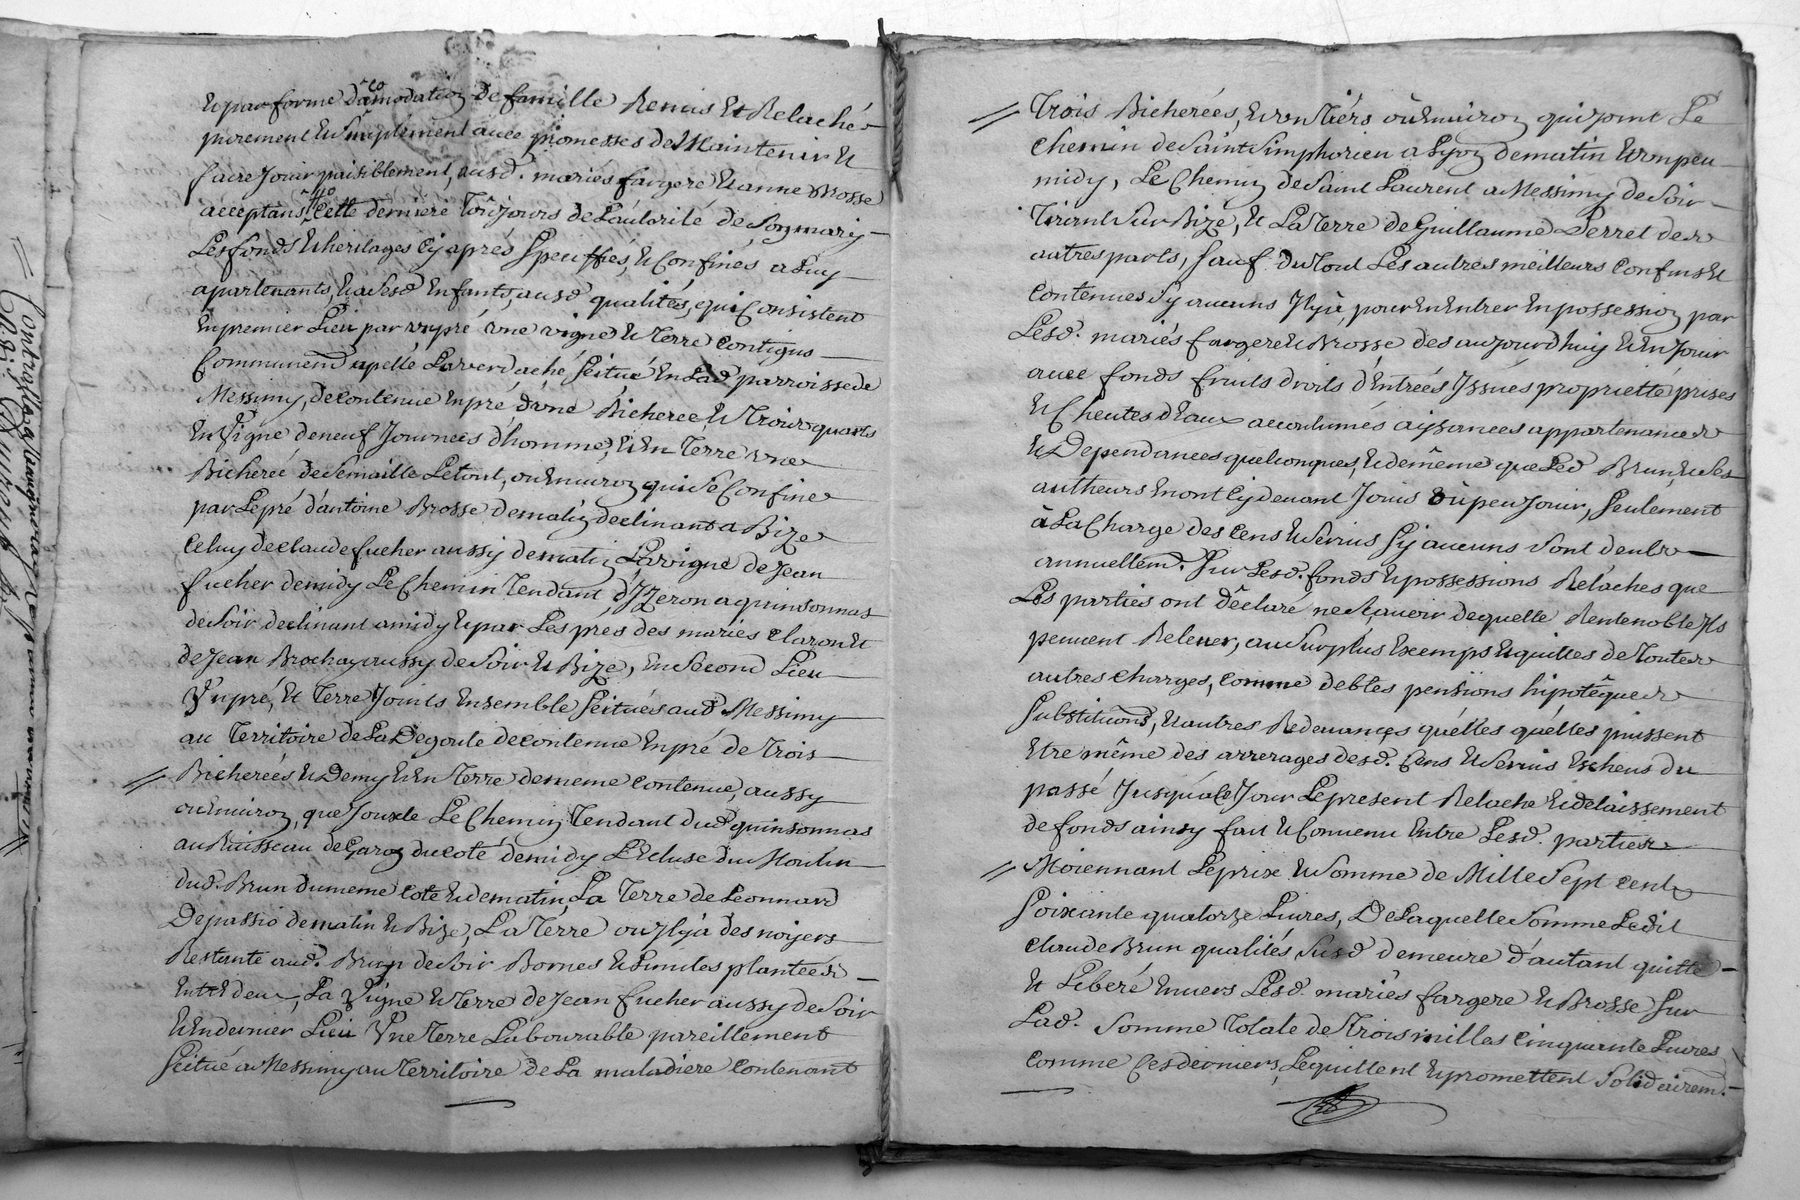 et par forme d'acomodation de famille Remis Et Relaché
purement et simplement avec promesses de Maintenir et
faire Jouir paisiblement, ausd. mariés fargere et anne Brosse
acceptans cette derniere Toûjours de L'autorité de Son mary
Les fonds et heritages Cy aprés Speciffiés, et Confinés a Luy
apartenants, et a Sesd Enfants, ausd qualités, qui Consistent
En premier Lieu par un pré une vigne et Terre Contigus
Communemd apellé La verdaché Scitué En Lad parroisse de
Messimy, de contenue En pré d'une Bicherée et Trois quarts
En Vigne de neuf Journées d'homme, et En Terre une
Bicherée de Semaille Le tout, ou Environ qui Se Confine
par Le pré d'antoine Brosse de matin declinant a Bize
Celuy de claude fucher aussy de matin La vigne de Jean
fucher de midy Le Chemin Tendant d'Izeron a quinsonnas
de Soir declinant a midy et par Les prés des mariés Claron et
de Jean Brochay aussy de Soir et Bize, En Second Lieu
Un pré, et Terre Joints Ensemble Scitués aud Messimy
au Territoire de La Degoute de contenue En pré de Trois
Bicherées et Demy et En Terre de meme contenue, aussy
ou Environ, que Jouxte Le Chemin Tendant dud quinsonnas
au Ruisseau de Garon du coté de midy L'Ecluse du Moulin
dud. Brun du meme coté et de matin, La Terre de Leonnard
Depassio de matin et Bize, La Terre ou Il y a des noijers
Restante aud. Brun de Soir Bornes et Limites plantées
Entre deux, La Vigne et Terre de Jean fucher aussy de Soir
et En dernier Lieu Une Terre Labourable pareillement
Scitué a Messimy au Territoire de La maladiere contenant
Trois Bicherées, et un Tiers ou Environ qui joint Le
Chemin de Saint Simphorien a Lyon de matin et un peu
midy, Le Chemin de Saint Laurent a Messimy de Soir
Tirant Sur Bize, et La Terre de Guillaume Perret des
autres parts, Sauf du Tout Les autres meilleurs Confins et
Contenues Sy aucuns Il y a, pour En Entrer En possession par
Lesd. mariés fargere et Brosse des aujourd'huy et En Jouir
avec fonds fruits droits d'Entrées Issues proprietté prises
et Cheutes d'Eaux accoutumés aisances appartenances
et Dependances quelconques, et de même que Led Brun, et Ses
autheurs En ont Cy devant Jouis ou peu Jouir, Seulement
â La Charge des Cens et Servis Sy aucuns Sont deubs
annuellem. Sur Lesd. fonds et possessions Relâches que
Les parties ont dêclaré ne Sçavoir de quelle Rente noble Ils
peuvent Relever, au Surplus Exemps et quittes de Toutes
autres Charges, comme debtes pensions hipotêques
Substitutions, et autres Redevances qu'elles qu'elles puissent
Etre même des arrerages desd. Cens et Servis Escheus du
passé Jusqu'à ce Jour Le present Relache et delaissement
de fonds ainsy fait et Convenu Entre Lesd. parties
Moiennant Le prix et Somme de Mille Sept cents
Soixante quatorze Livres, De Laquelle Somme Ledit
claude Brun qualités Susd demeure d'autant quitte
et Liberé Envers Lesd. mariés fargere et Brosse Sur
Lad. Somme Totale de Trois milles Cinquante Livres
comme Ces derniers, Le quittent et promettent Solidairem.